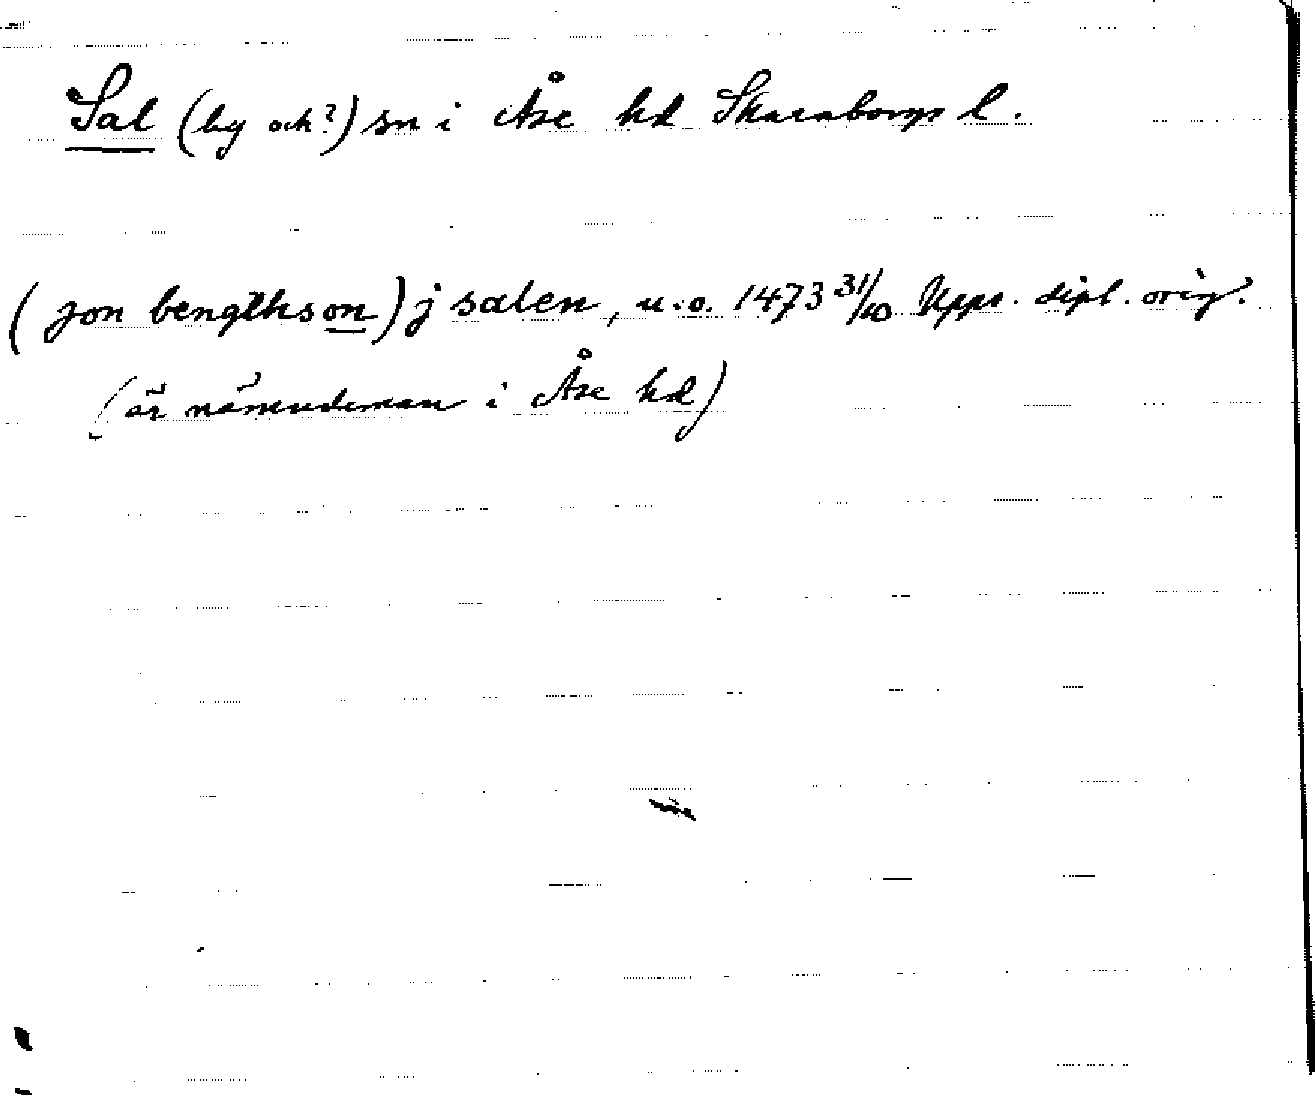 Sal (by och?) sn i Åse hd Skaraborgs l.
(jon bengthson) j salen, u.o. 1473 31/10 Upps. dipl. orig.
(är nämndeman i Åse hd)